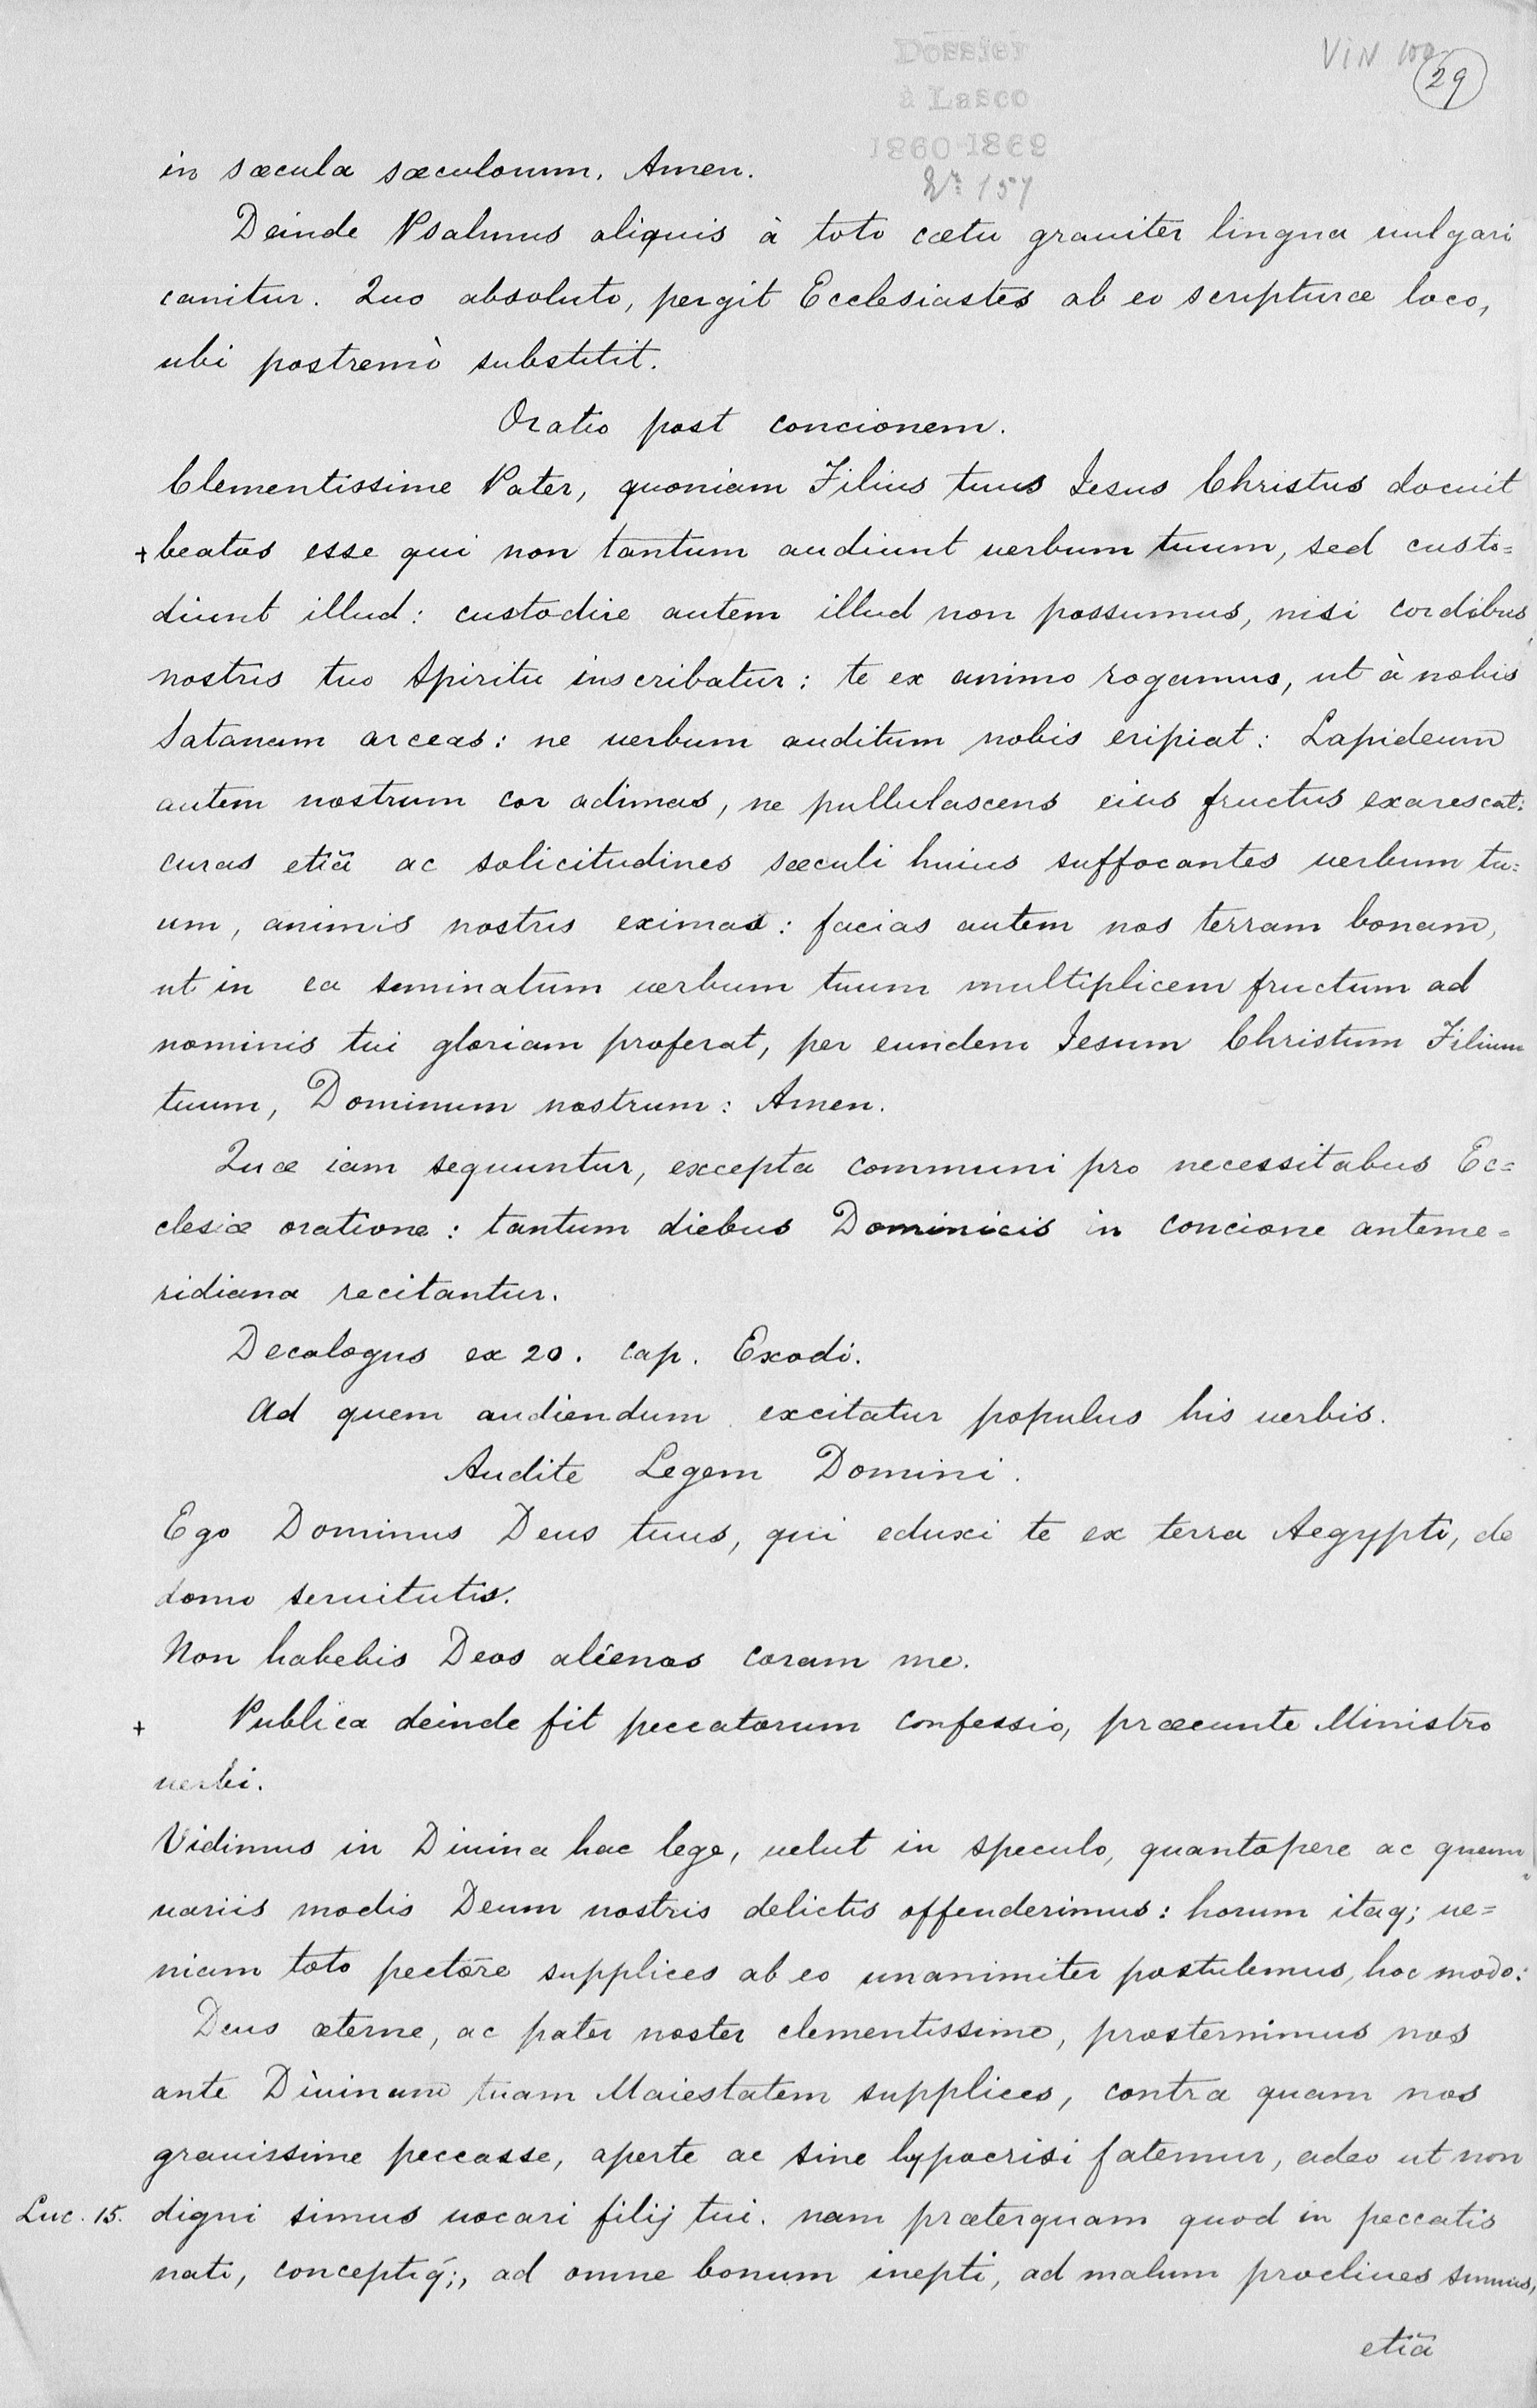 Dossier
à Lasco
1860-1869
Nr. 157
VIN 100
29
in sæcula sæculorum. Amen.
Deinde Psalmus aliquis à toto cœtu grauiter lingua uulgari
canitur. Quo absoluto, pergit Ecclesiastes ab eo scripturæ loco,
ubi postremò substitit.
Oratio post concionem.
Clementissime Pater, quoniam Filius tuus Iesus Christus docuit
+ beatos esse qui non tantum audiunt uerbum tuum, sed custo=
diunt illud: custodire autem illud non possumus, nisi cordibus
nostris tuo Spiritu inscribatur: te ex animo rogamus, ut à nobis
Satanam arceas: ne uerbum auditum nobis eripiat: Lapideum
autem nostrum cor adimas, ne pullulascens eius fructus exarescat:
curas etiã ac solicitudines sæculi huius suffocantes uerbum tu=
um, animis nostris eximas: facias autem nos terram bonam,
ut in ea seminatum uerbum tuum multiplicem fructum ad
nominis tui gloriam proferat, per eundem Iesum Christum Filium
tuum, Dominum nostrum: Amen.
Quæ iam sequuntur, excepta communi pro necessitabus Ec=
clesiæ oratione: tantum diebus Dominicis in concione anteme=
ridiana recitantur.
Decalogus ex 20. cap. Exodi.
Ad quem audiendum excitatur populus his uerbis.
Audite Legem Domini.
Ego Dominus Deus tuus, qui eduxi te ex terra Aegypti, de
domo seruitutis.
Non habebis Deos alienos coram me.
+ Publica deinde fit peccatorum confessio, præeunte Ministro
uerbi.
Vidimus in Diuina hac lege, uelut in speculo, quantopere ac quam
uariis modis Deum nostris delictis offenderimus: horum itaq; ue=
niam toto pectore supplices ab eo unanimiter postulemus, hoc modo:
Deus æterne, ac pater noster clementissime, prosternimus nos
ante Diuinam tuam Maiestatem supplices, contra quam nos
grauissime peccasse, aperte ac sine hypocrisi fatemur, adeo ut non
Luc. 15. digni simus uocari filij tui. nam præterquam quod in peccatis
nati, conceptiq́;, ad omne bonum inepti, ad malum procliues sumus,
etiã